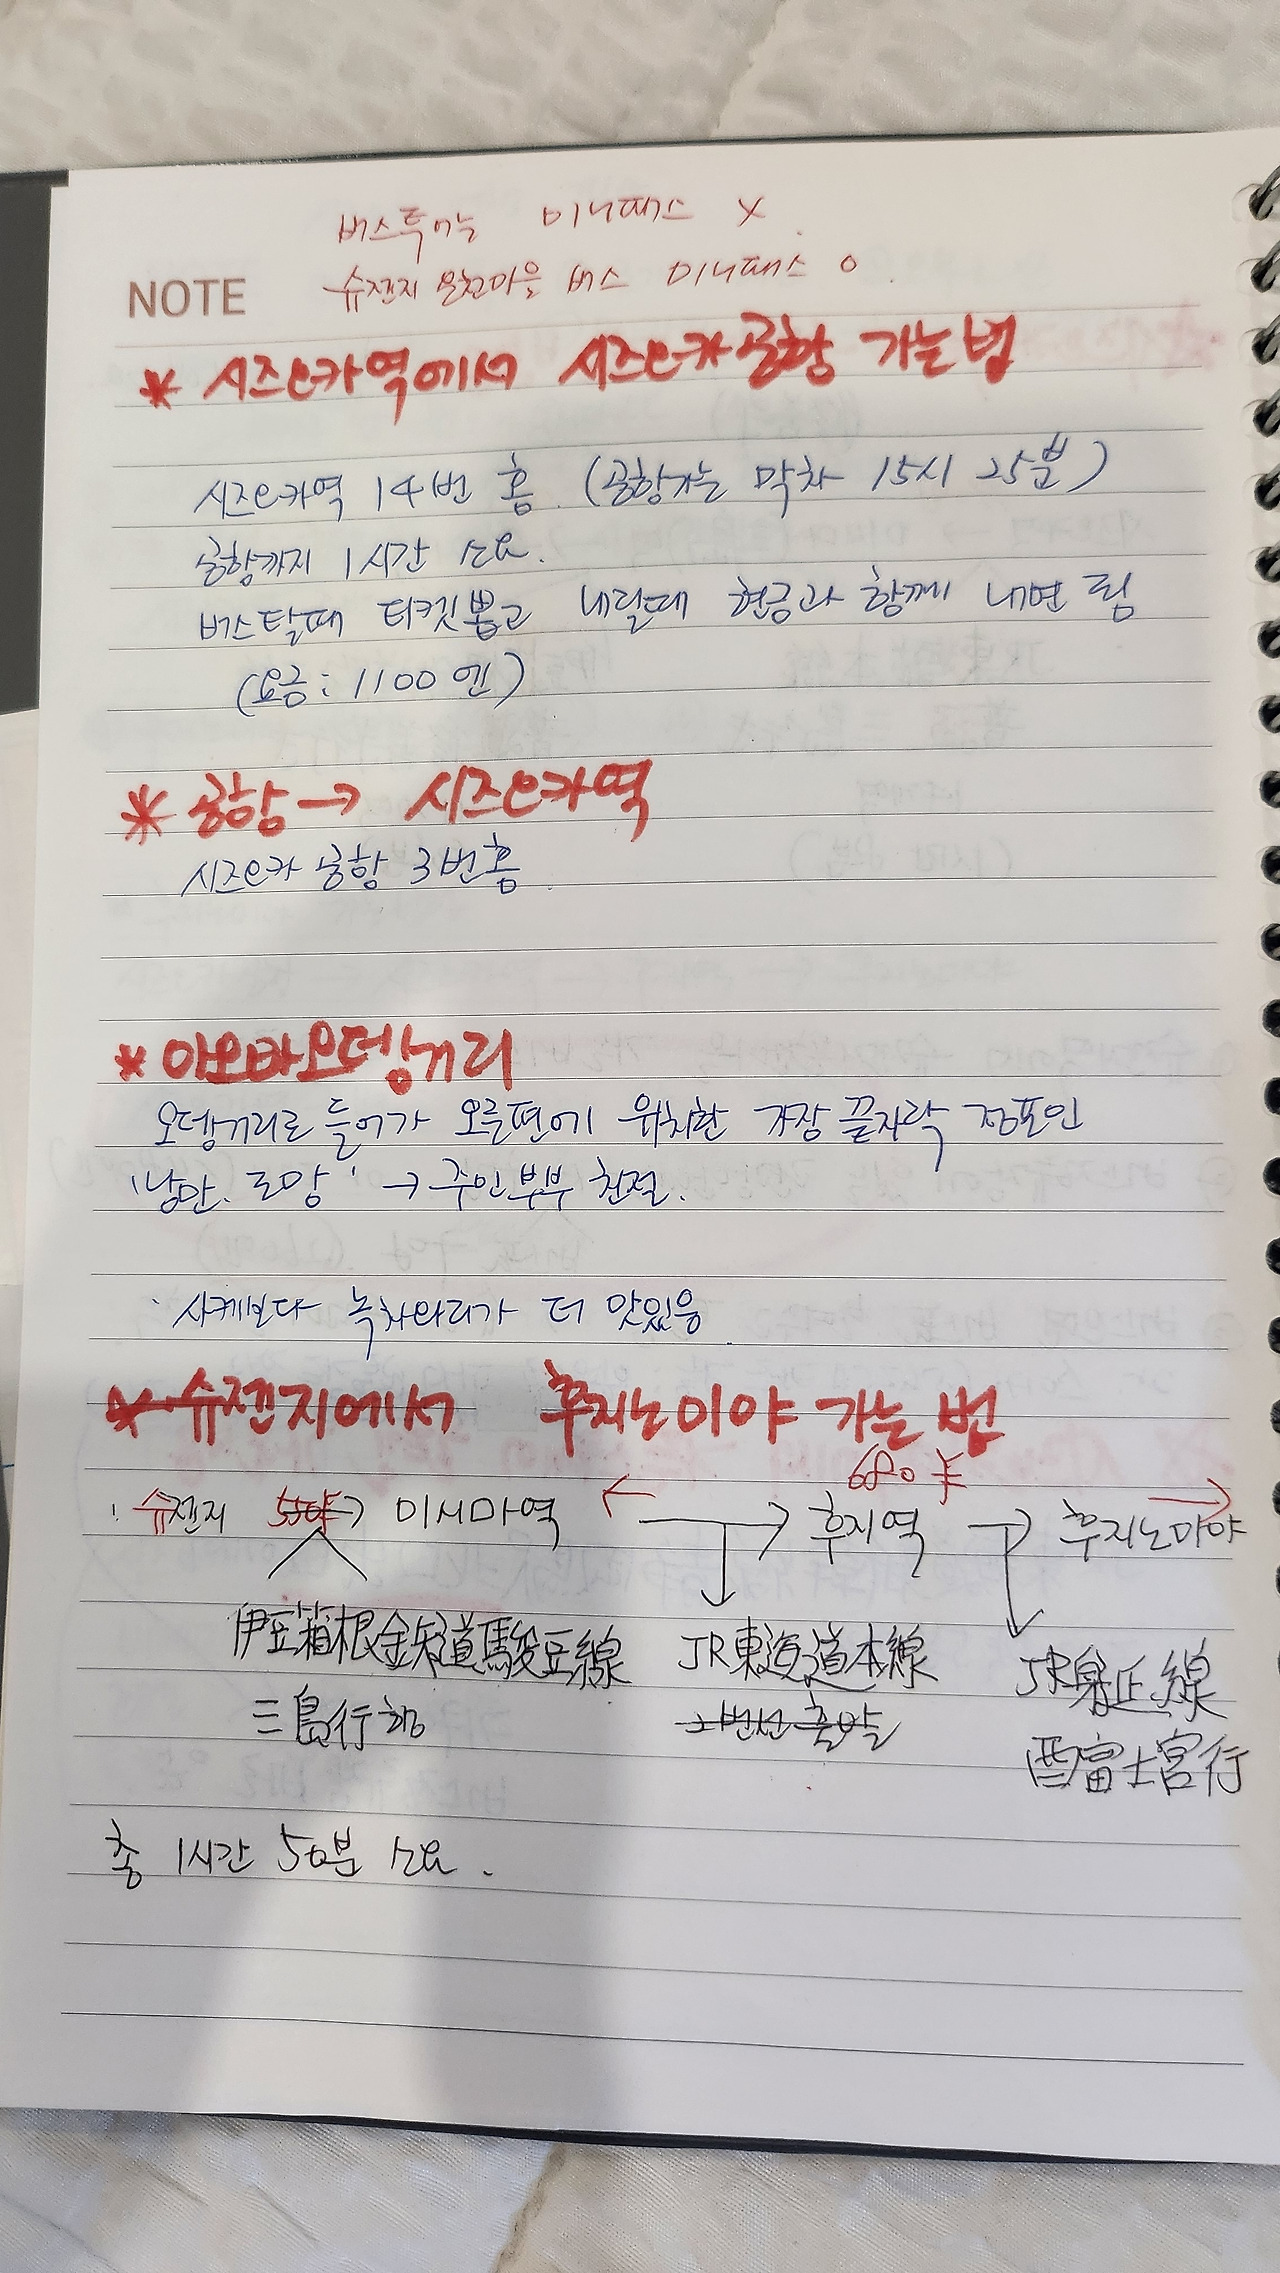 버스투어는 미니패스 X
슈젠지 온천마을 버스 미니패스 O
NOTE
* 시즈오카역에서 시즈오카공항 가는법
시즈오카역 14번 홈. (공항가는 막차 15시 25분)
공항까지 1시간 소요.
버스탈때 티켓뽑고 내릴때 현금과 함께 내면 됨
(요금: 1100엔)
* 공항 → 시즈오카역
시즈오카 공항 3번홈.
* 아오바오뎅거리
오뎅거리로 들어가 오른편에 위치한 가장 끝자락 점포인
'낭만. 로망' → 주인부부 친절.
· 사케보다 녹차와리가 더 맛있음.
* 슈젠지에서 후지노미야 가는 법
← 680¥ →
· 슈젠지 → 미시마역 → 후지역 → 후지노미야
伊豆箱根鉄道駿豆線 JR東海道本線 JR身延線
三島行행 2번선 출발 西富士宮行
총 1시간 50분 소요.